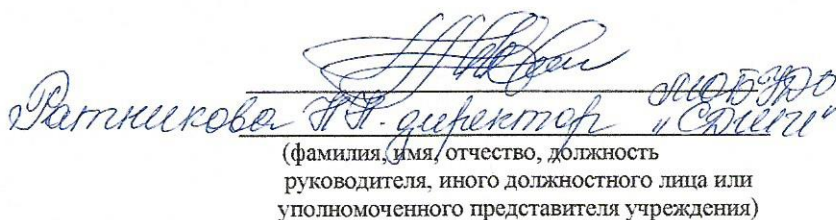 Ратникова Н.Н. директор МОБУДО "СДШИ"
(фамилия, имя, отчество, должность
руководителя, иного должностного лица или
уполномоченного представителя учреждения)